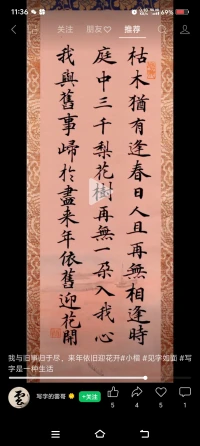 11:36
69%
关注
朋友
推荐
枯木猶有逢春日人且再無相逢時
庭中三千梨花樹再無一朵入我心
我與舊事歸於盡来年依舊迎花開
我与旧事归于尽，来年依旧迎花开#小楷 #见字如面 #写
字是一种生活
写字的雷哥
关注
5
4
5
1